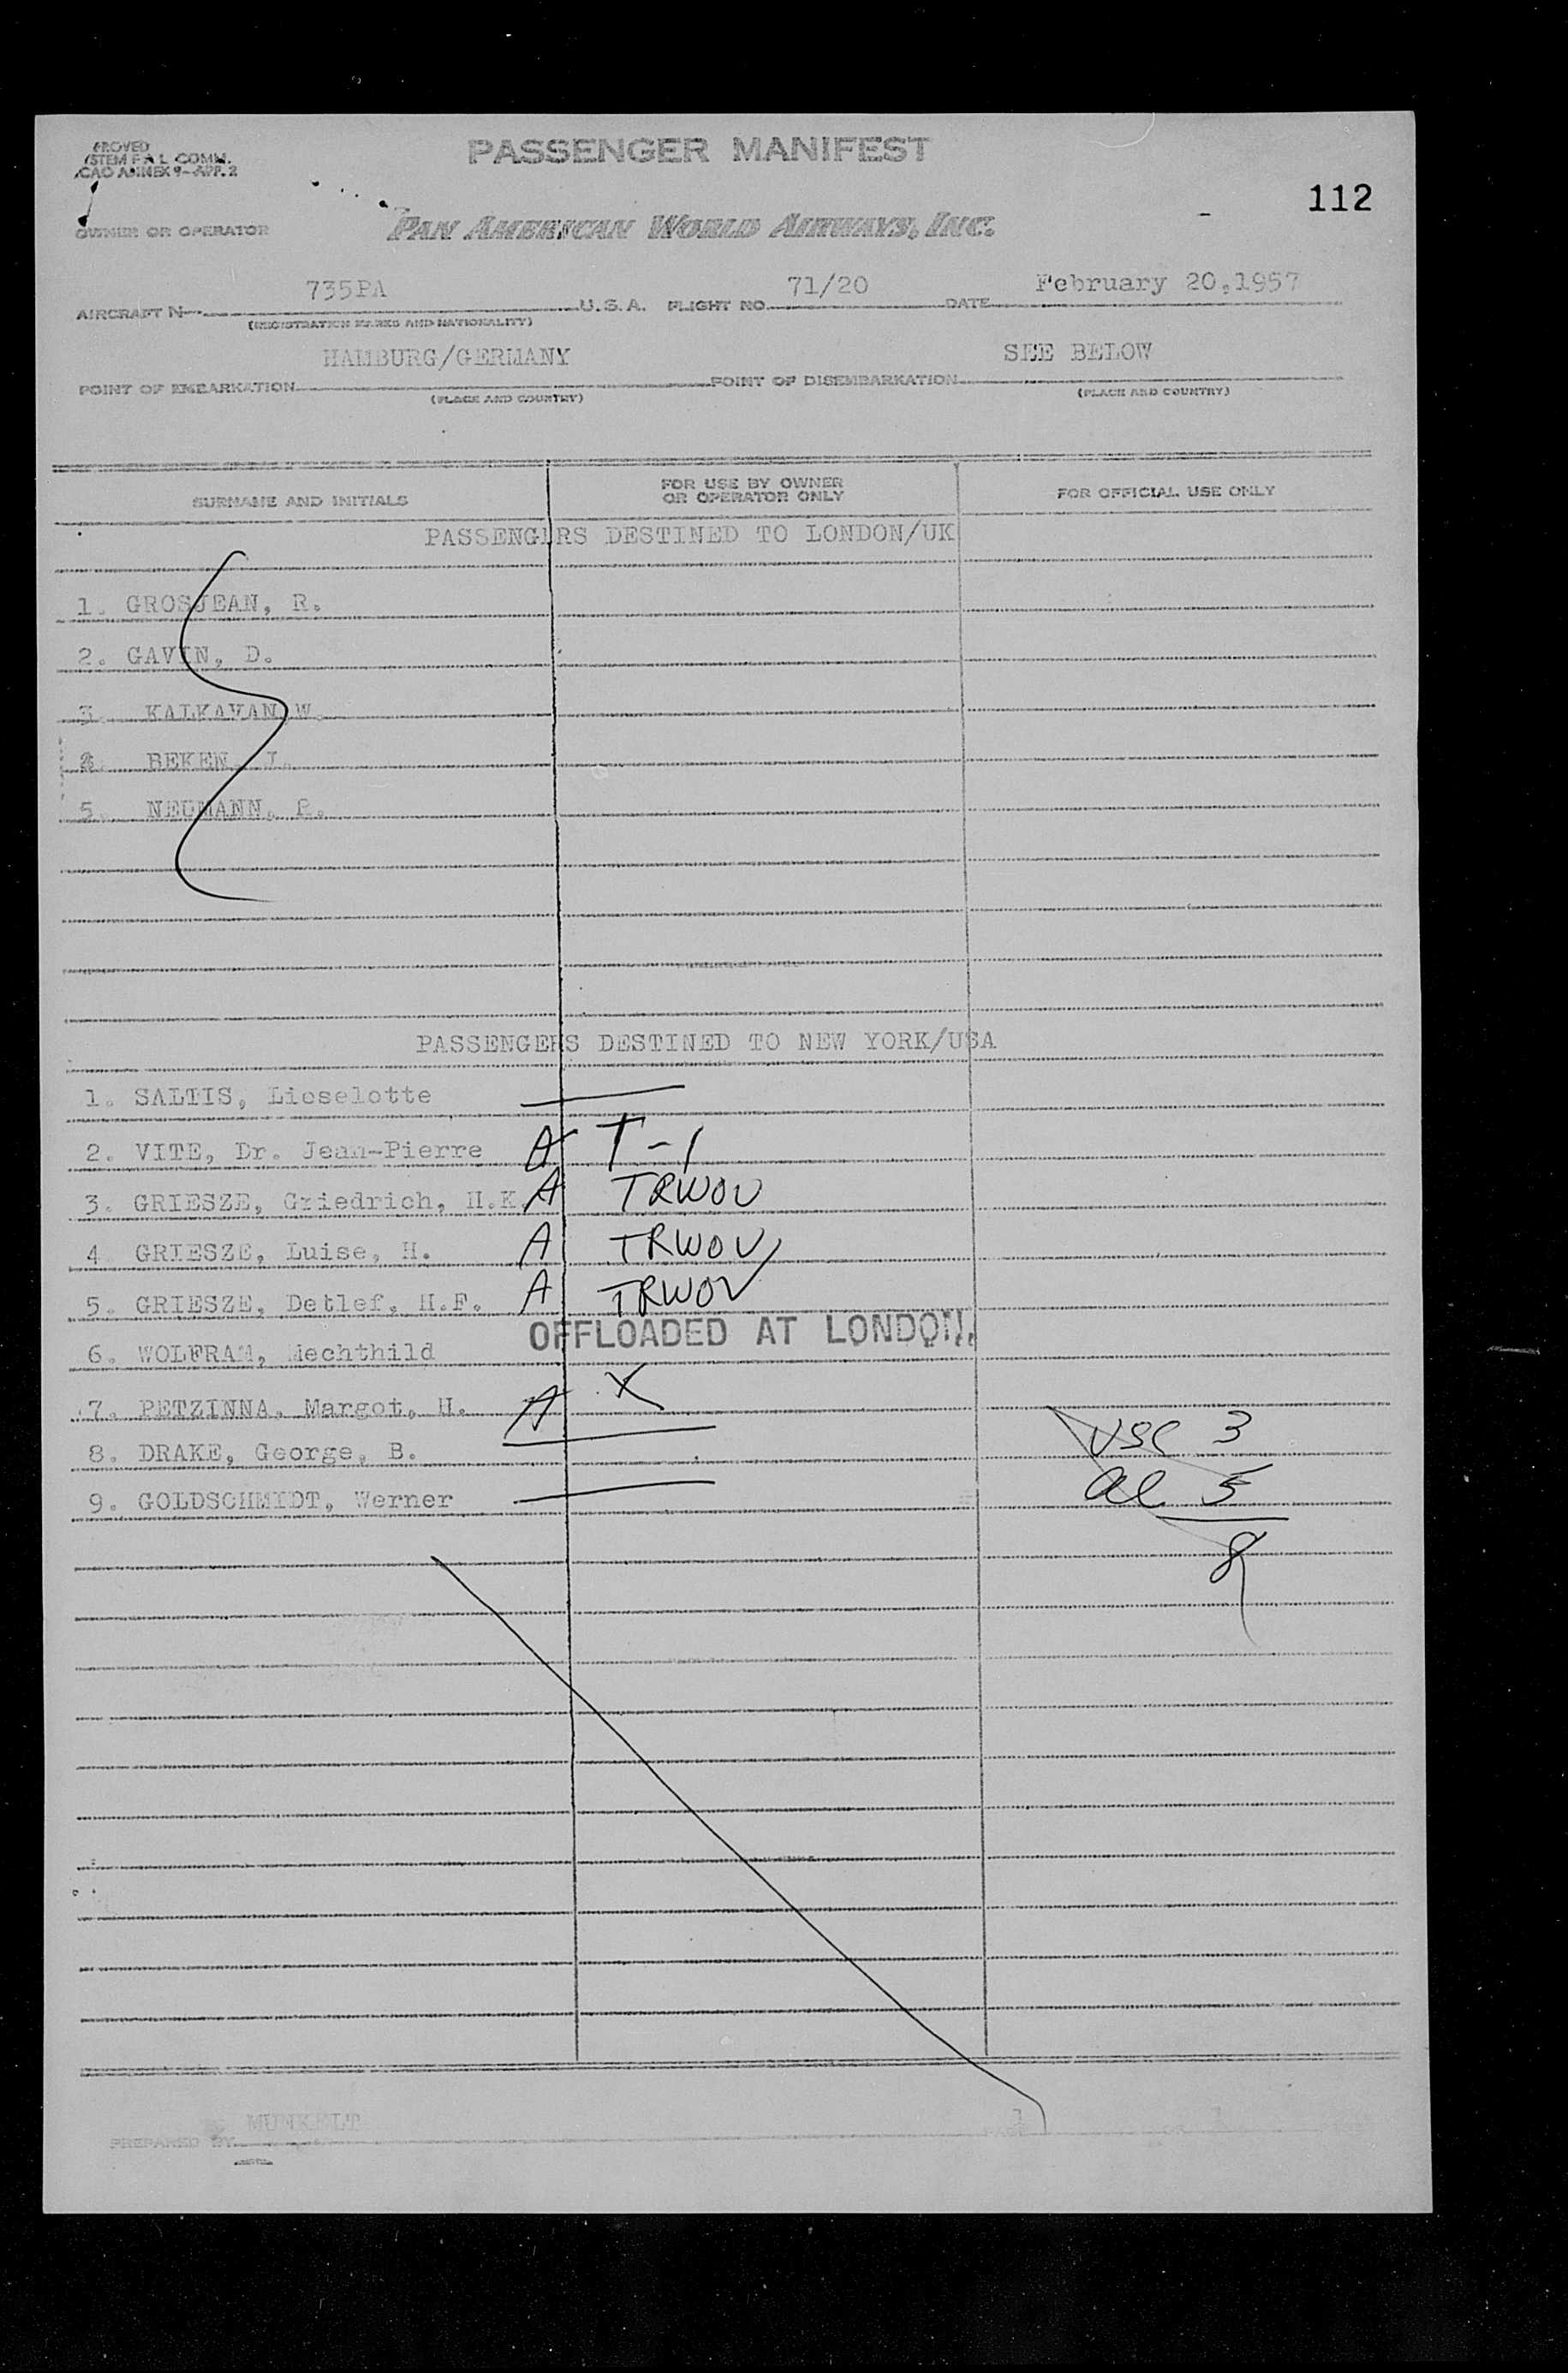 PROVED
STEM F A L COMM.
CAO ANNEX 9-APP. 2
PASSENGER MANIFEST
112
OWNER OR OPERATOR PAN AMERICAN WORLD AIRWAYS, INC.
AIRCRAFT N 735PA U.S.A. FLIGHT NO. 71/20 DATE February 20,1957
(REGISTRATION MARKS AND NATIONALITY)
POINT OF EMBARKATION HAMBURG/GERMANY POINT OF DISEMBARKATION SEE BELOW
(PLACE AND COUNTRY) (PLACE AND COUNTRY)
SURNAME AND INITIALS FOR USE BY OWNER OR OPERATOR ONLY FOR OFFICIAL USE ONLY
PASSENGERS DESTINED TO LONDON/UK
1. GROSJEAN, R.
2. GAVIN, D.
3. KALKAVAN, W.
4. BEKEN, J.
5. NEUMANN,
PASSENGERS DESTINED TO NEW YORK/USA
1. SALTIS, Lieselotte
2. VITE, Dr. Jean-Pierre A T-1
3. GRIESZE, Griedrich, H.K. A TRWOV
4 GRIESZE, Luise, H. A TRWOV
5. GRIESZE, Detlef, H.F. A TRWOV
OFFLOADED AT LONDON.
6. WOLFRAM, Mechthild
7. PETZINNA, Margot, H. A X
8. DRAKE, George, B. USC 3
9. GOLDSCHMIDT, Werner al 5
8
PREPARED BY MUNKELT PAGE 1